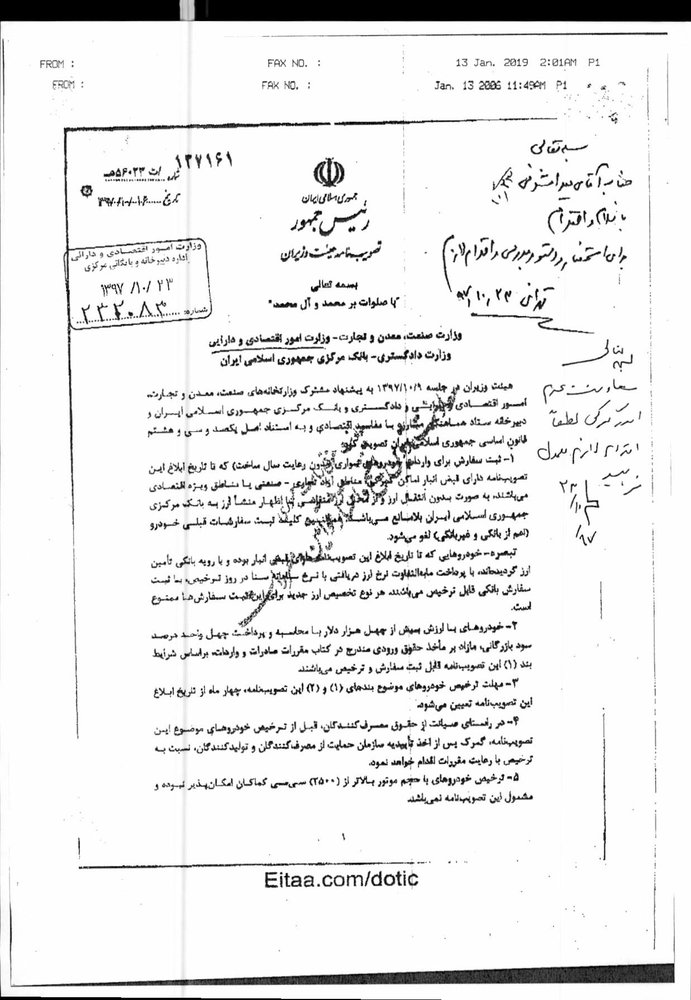 FROM :
FAX NO. :
13 Jan. 2019 2:01AM P1
FROM :
FAX NO. :
Jan. 13 2006 11:49AM P1
شماره ۱۳۷۱۶۱/ت۵۶۰۲۳هـ
تاریخ ۱۳۹۷/۱۰/۱۶
جمهوری اسلامی ایران
رئیس جمهور
تصویب نامه هیئت وزیران
وزارت امور اقتصادی و دارائی
اداره دبیرخانه و بایگانی مرکزی
۱۳۹۷/۱۰/۲۳
شماره: ۲۳۲۰۸۳
بسمه تعالی
"با صلوات بر محمد و آل محمد"
وزارت صنعت، معدن و تجارت- وزارت امور اقتصادی و دارایی
وزارت دادگستری- بانک مرکزی جمهوری اسلامی ایران
هیئت وزیران در جلسه ۱۳۹۷/۱۰/۹ به پیشنهاد مشترک وزارتخانه‌های صنعت، معدن و تجارت،
امور اقتصادی و دارایی و دادگستری و بانک مرکزی جمهوری اسلامی ایران و
دبیرخانه ستاد هماهنگی مبارزه با مفاسد اقتصادی و به استناد اصل یکصد و سی و هشتم
قانون اساسی جمهوری اسلامی ایران تصویب کرد:
۱- ثبت سفارش برای واردات خودروهای سواری (بدون رعایت سال ساخت) که تا تاریخ ابلاغ این
تصویب‌نامه دارای قبض انبار اماکن گمرکی، مناطق آزاد تجاری - صنعتی یا مناطق ویژه اقتصادی
می‌باشند، به صورت بدون انتقال ارز و از محل ارز متقاضی با اظهار منشأ ارز به بانک مرکزی
جمهوری اسلامی ایران بلامانع می‌باشد. همچنین کلیه ثبت سفارشات قبلی خودرو
(اعم از بانکی و غیربانکی) لغو می‌شود.
تبصره- خودروهایی که تا تاریخ ابلاغ این تصویب‌نامه دارای قبض انبار بوده و با رویه بانکی تأمین
ارز گردیده‌اند، با پرداخت مابه‌التفاوت نرخ ارز دریافتی با نرخ سامانه سنا در روز ترخیص، با ثبت
سفارش بانکی قابل ترخیص می‌باشند. هر نوع تخصیص ارز جدید برای این ثبت سفارش‌ها ممنوع
است.
۲- خودروهای با ارزش بیش از چهل هزار دلار با محاسبه و پرداخت چهل واحد درصد
سود بازرگانی، مازاد بر مأخذ حقوق ورودی مندرج در کتاب مقررات صادرات و واردات، براساس شرایط
بند (۱) این تصویب‌نامه قابل ثبت سفارش و ترخیص می‌باشند.
۳- مهلت ترخیص خودروهای موضوع بندهای (۱) و (۲) این تصویب‌نامه، چهار ماه از تاریخ ابلاغ
این تصویب‌نامه تعیین می‌شود.
۴- در راستای صیانت از حقوق مصرف‌کنندگان، قبل از ترخیص خودروهای موضوع این
تصویب‌نامه، گمرک پس از اخذ تأییدیه سازمان حمایت از مصرف‌کنندگان و تولیدکنندگان، نسبت به
ترخیص با رعایت مقررات اقدام خواهد نمود.
۵- ترخیص خودروهای با حجم موتور بالاتر از (۲۵۰۰) سی‌سی کماکان امکان‌پذیر نبوده و
مشمول این تصویب‌نامه نمی‌باشند.
۱
بسمه تعالی
با سلام و احترام
برای استحضار و دستور بررسی و اقدام لازم
۹۷/۱۰/۲۳
Eitaa.com/dotic